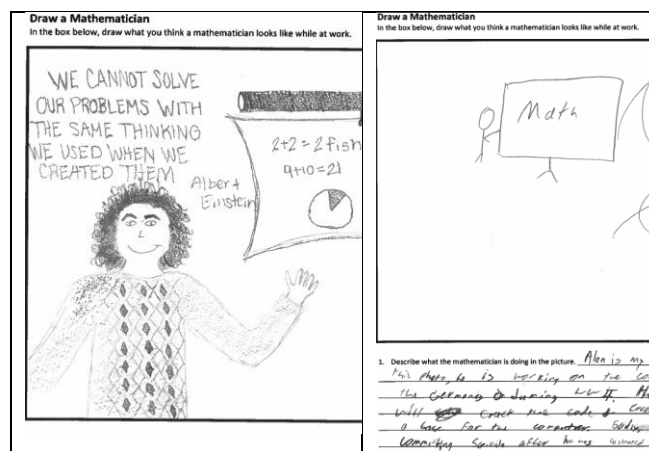 Draw a Mathematician
In the box below, draw what you think a mathematician looks like while at work.
WE CANNOT SOLVE
OUR PROBLEMS WITH
THE SAME THINKING
WE USED WHEN WE
CREATED THEM
Albert
Einstein
2+2=2fish
9+10=21
Draw a Mathematician
In the box below, draw what you think a mathematician looks like while at work.
Math
1. Describe what the mathematician is doing in the picture. Alan is my
this photo, he is working on the
the Germans during WW II.
will crack the code
a base for the
committing suicide after he was